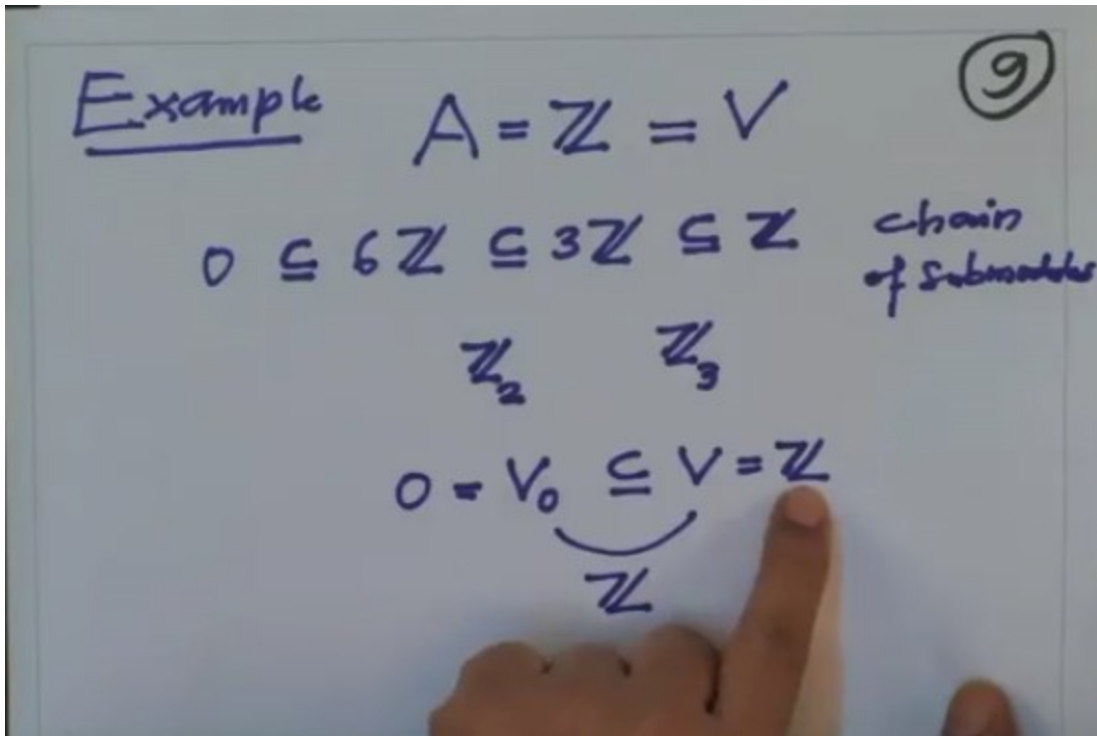 Example A = ℤ = V ⑨
0 ⊆ 6ℤ ⊆ 3ℤ ⊆ ℤ chain
of submodules
ℤ₂ ℤ₃
0 = V₀ ⊆ V = ℤ
ℤ